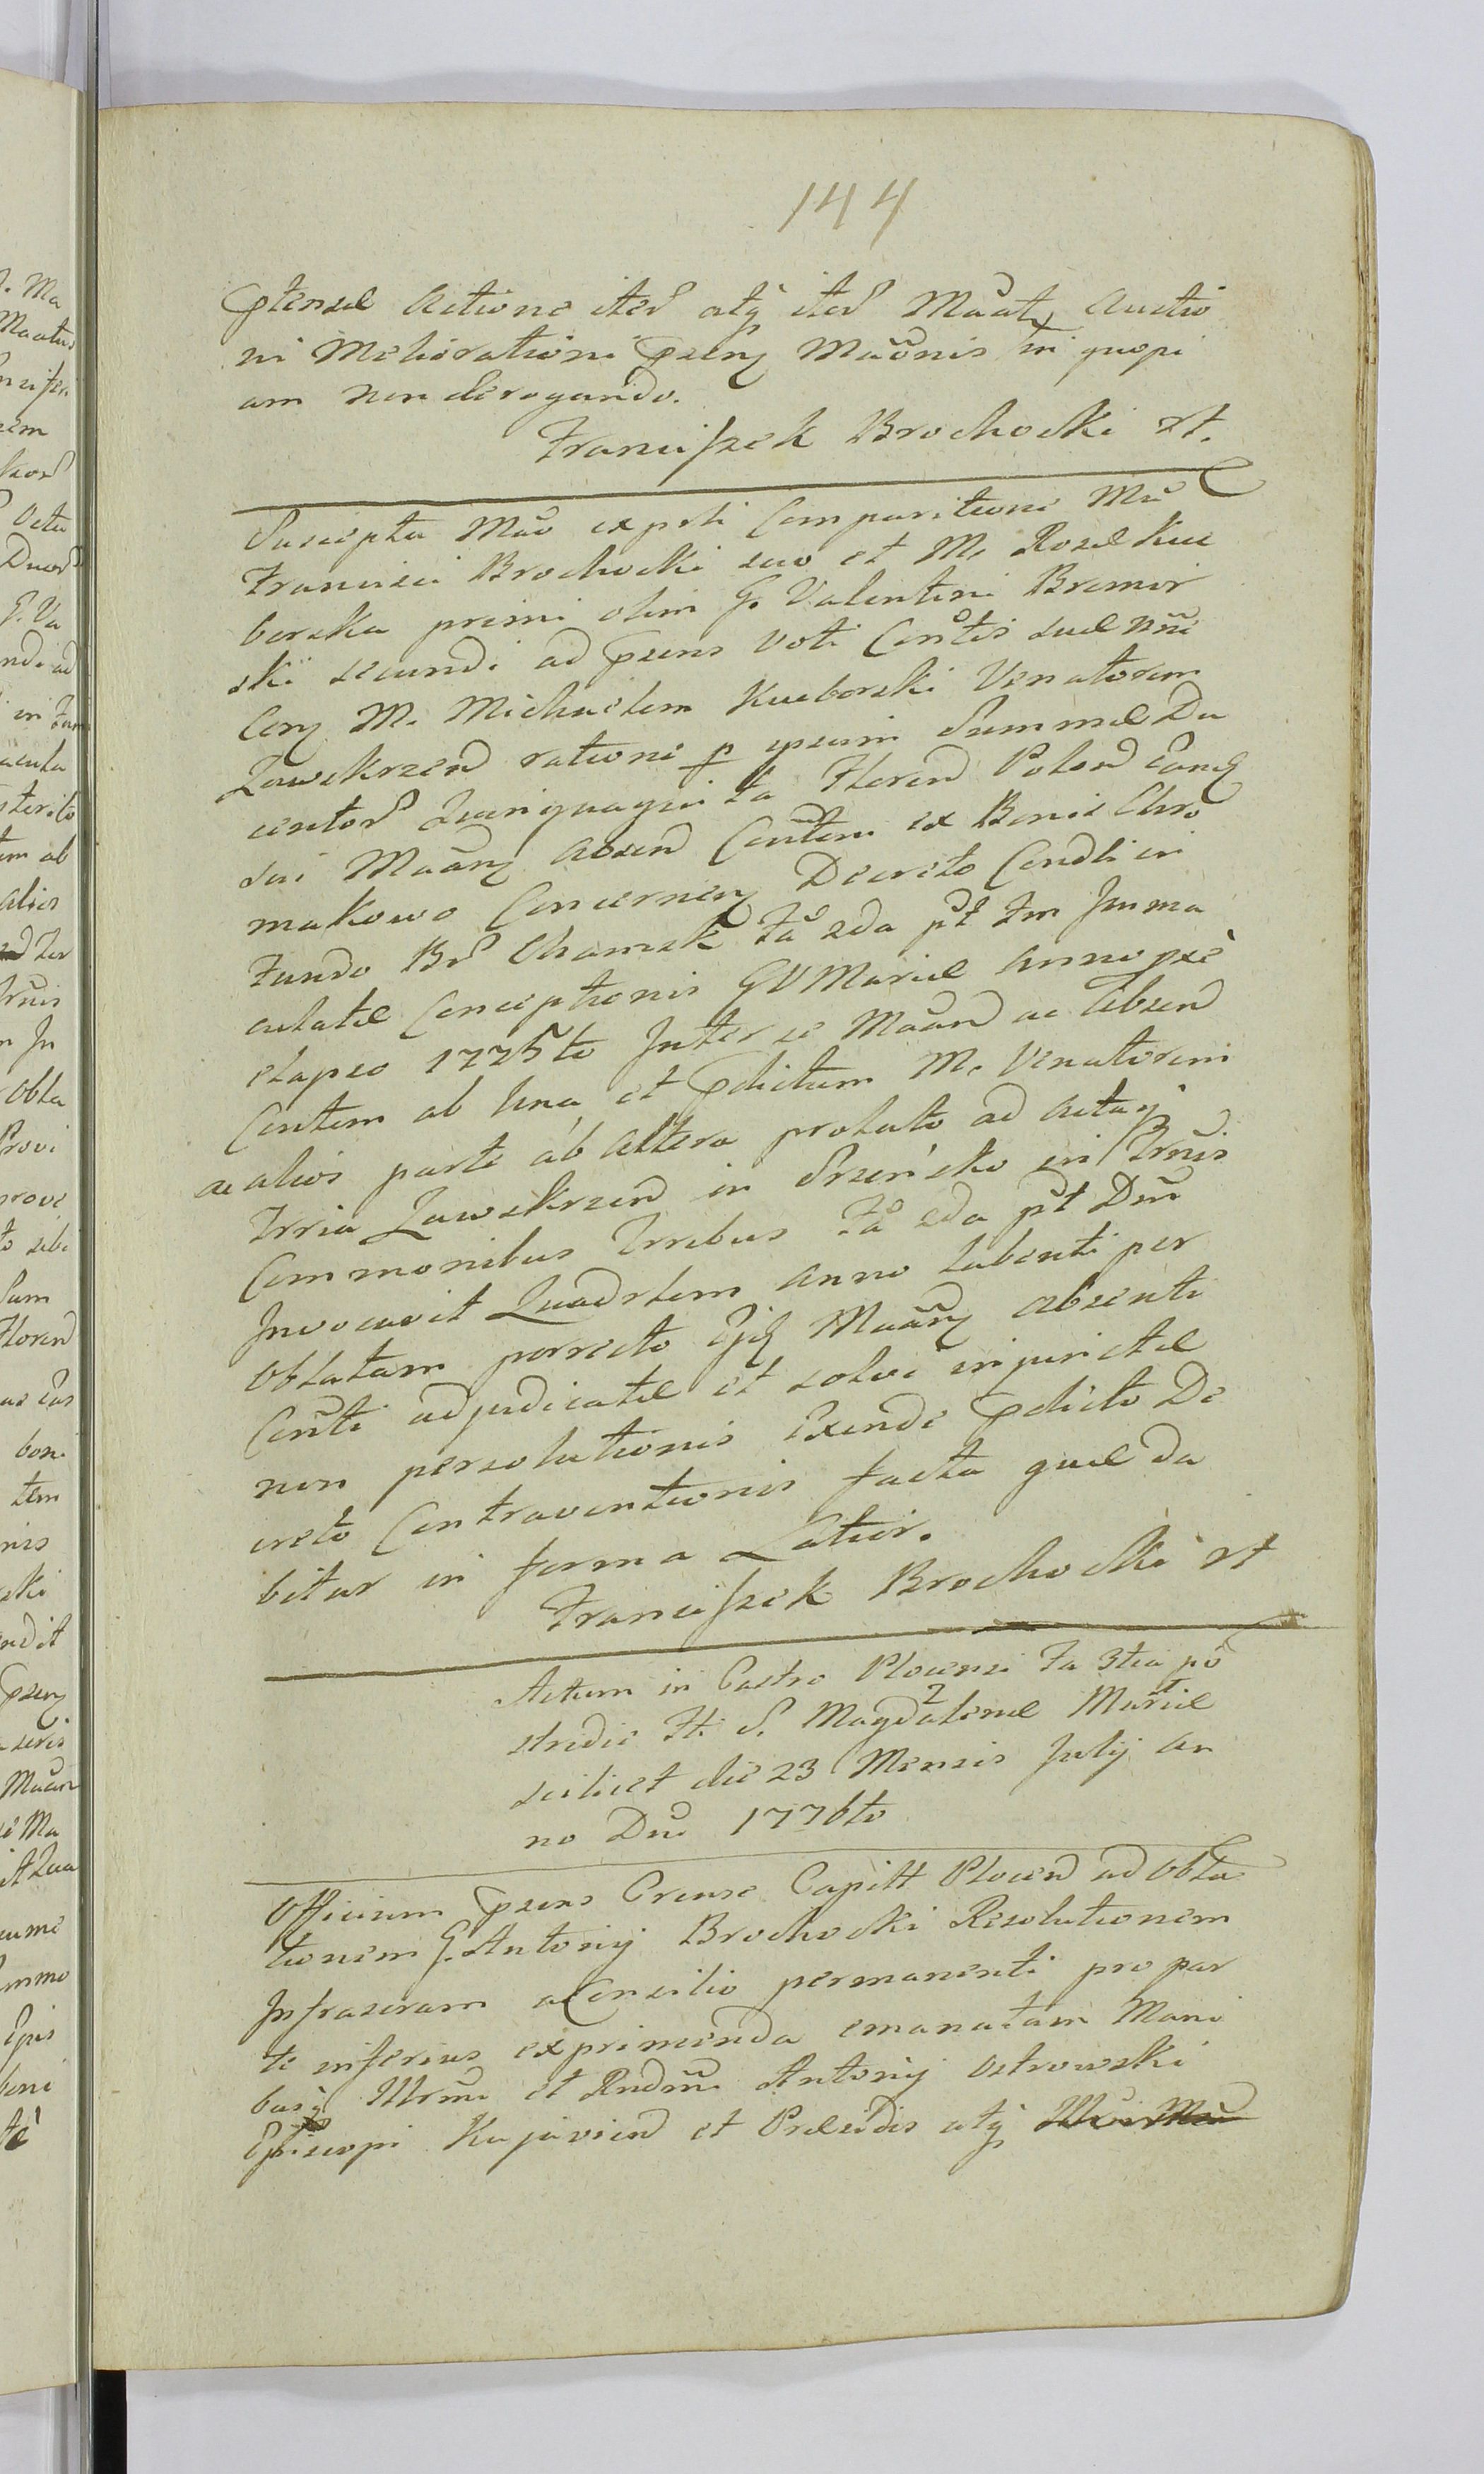 144
ptensae Actione iterd atq iterd Maat, auctio
ni Meliorationi psenq Maonis in quopi
am non derogando.
Franciszek Brochocki rt.
Suscepta Mao ex psti Comparitione Mci
Francisci Brochocki suo et M. Rosae Kuc
borska primi olim G. Valentini Bromir
ski secundi ad psens voti Contis suae nne
Con M. Michaelem Kucborski Venatorem
Zawskrzend ratione p ipsum Summae Du
centord Quinquaginta Florend Polond
sui Maanq absend Contem ex Bonis Chro
makowo Concernenq Decreto Condli in
Fundo Bd Chamsk Fa 2da pt Fm Imma
culatae Conceptionis GV Mariae Anno pxe
elapso 1775to Inter se Maand ac absend
Contem ab una et pdictum M. Venatorem
ac alios parte ab Altera prolato ad Actaq
Trria Zawskrzend in Srzeńsko in Trnis
Commonibus Trribus Fa 2da pt Dm
Invocavit Quadrlem anno labenti per
Oblatam porrecto Maanq absenti
Conti adjudicatae et solvi injunctae
non persolutionis Exinde pdicto De
creto Contraventionis facta quae da
bitur in forma Latior.
Franciszek Brochocki rt
Actum in Castro Plocensi Fa 3tia po
stridie Fti S. Magdalenae Mariae
scilicet die 23 Mensis July an
no Dni 1776to
Officium psens Crense Capitt Plocend ad Obla
tionem G. Antonij Brochocki Resolutionem
Infrascram a Consilio permanenti pro par
te inferius exprimenda emanatam Mani
busq Illrmi et Rndmi Antonij Ostrowski
Episcopi Kujaviend et Praesidis atq